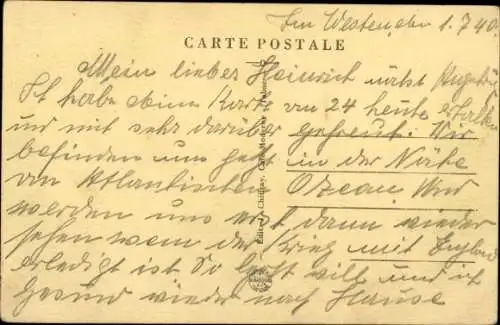 Im Westen, den 1.7.40.
CARTE POSTALE
Mein liebes Heinrich nebst
Ich habe deine Karte vom 24 heute erhalten
und mit sehr darüber gefreut. Wir
befinden uns jetzt in der Nähe
von Atlantischen Ozean Wir
werden uns erst dann wieder
sehen wenn der Krieg mit England
erledigt ist So Gott will und ich
Gesund wieder nach Hause